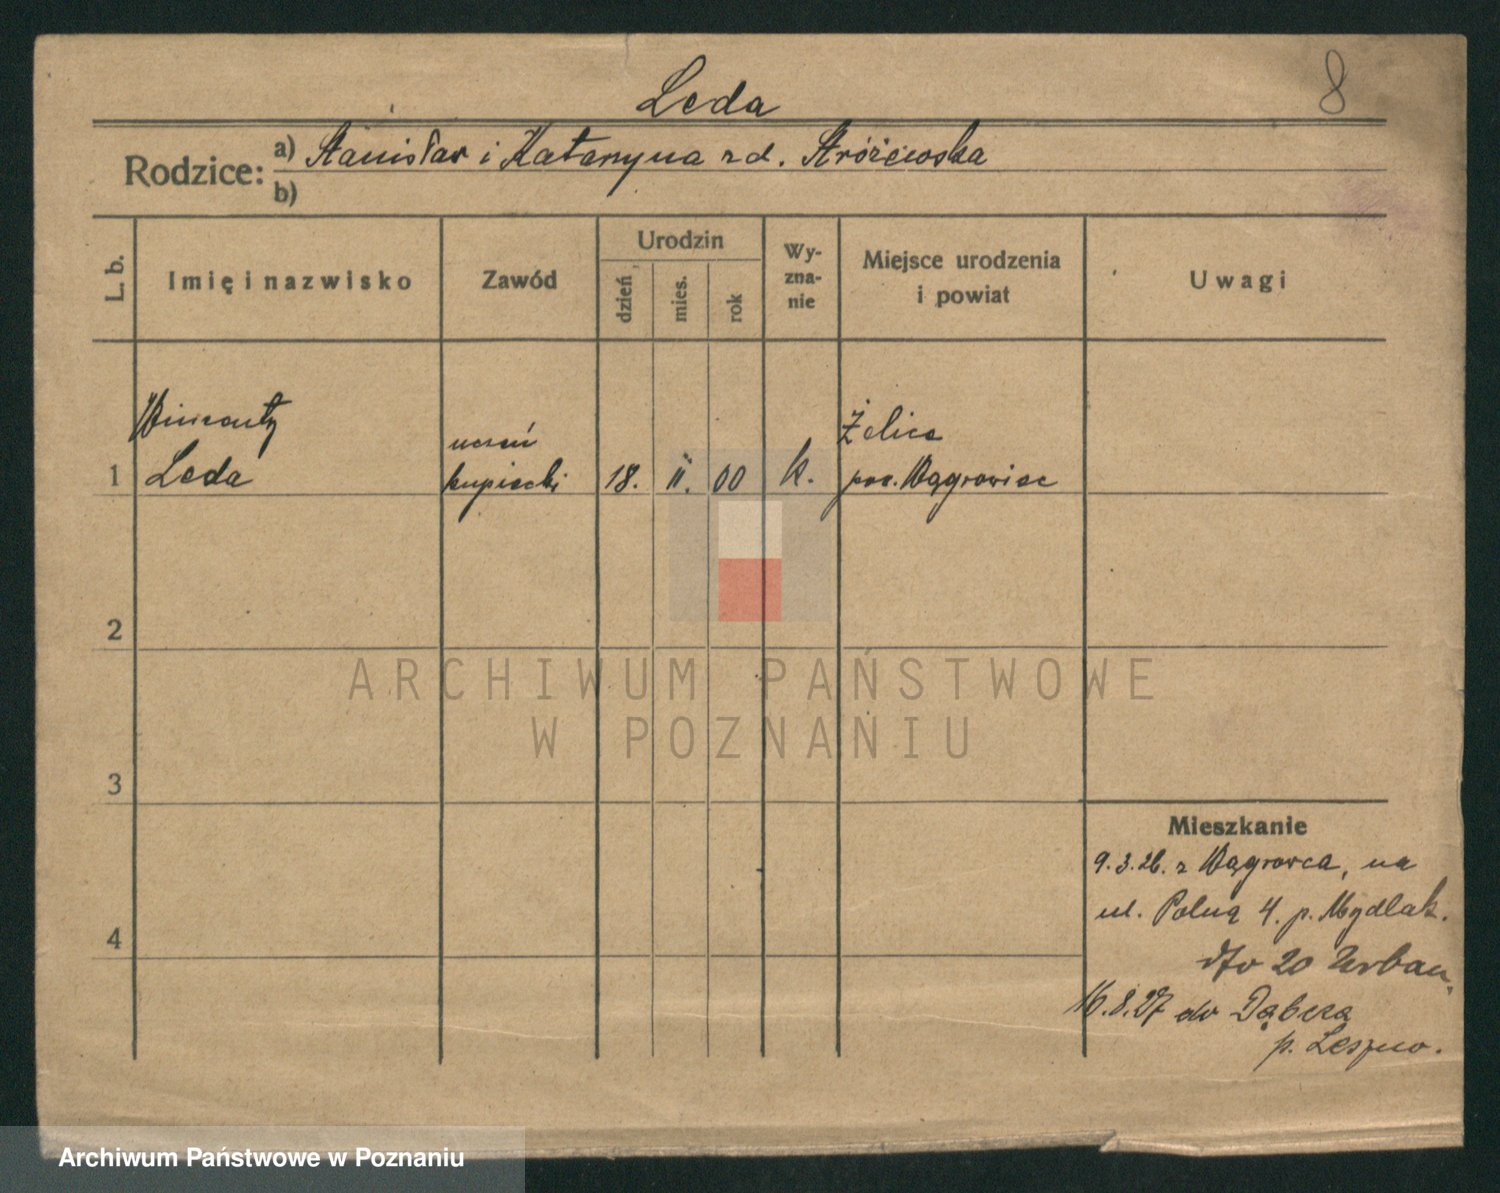 Leda
8
Rodzice: a) Stanisław i Katarzyna zd. Stróżewska
b)
L. b.
Imię i nazwisko
Zawód
Urodzin
dzień
mies.
rok
Wy-
zna-
nie
Miejsce urodzenia
i powiat
Uwagi
Wincenty
1 Leda
uczeń
kupiecki
18. II. 00
k.
Żelice
pow. Wągrowiec
2
3
4
ARCHIWUM PAŃSTWOWE
W POZNANIU
Mieszkanie
9.3.26. z Wągrowca, na
ul. Polną 4. p. Mydlak.
dto 20 Urban.
16.8.27 do Dąbcza
p. Leszno.
Archiwum Państwowe w Poznaniu